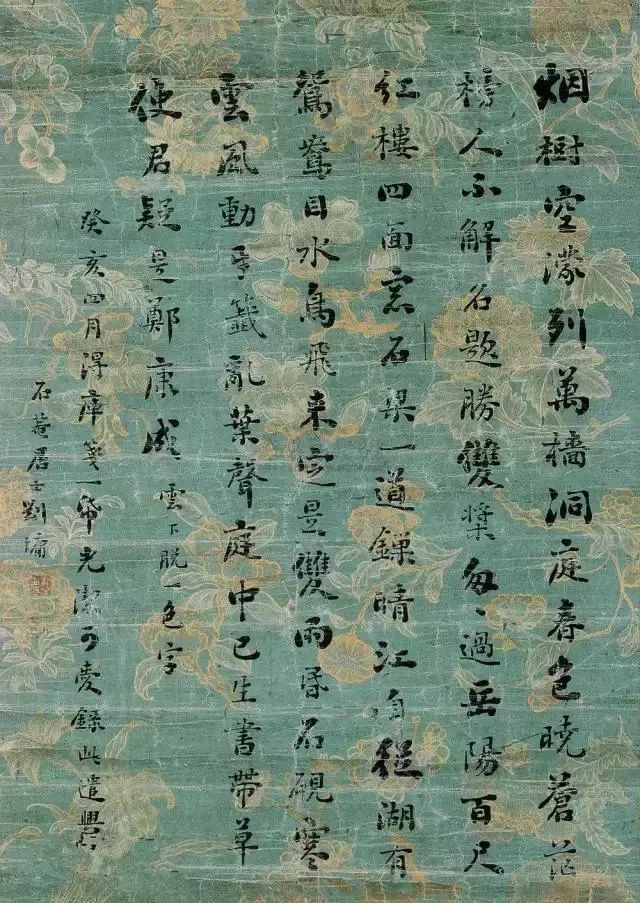 烟樹空濛列萬檣洞庭春色曉蒼茫
榜人不解名題勝雙槳匆〻過岳陽百尺
红樓四面窓石梁一道鏁晴江自從湖有
鴛鴦目水鳥飛来定是雙雨昏石硯寒
雲風動牙籤亂葉聲庭中已生書帶草
使君疑是鄭康成 雲下脱一色字
癸亥四月得庫箋一帋光潔可愛錄此遣興
石菴居士劉墉